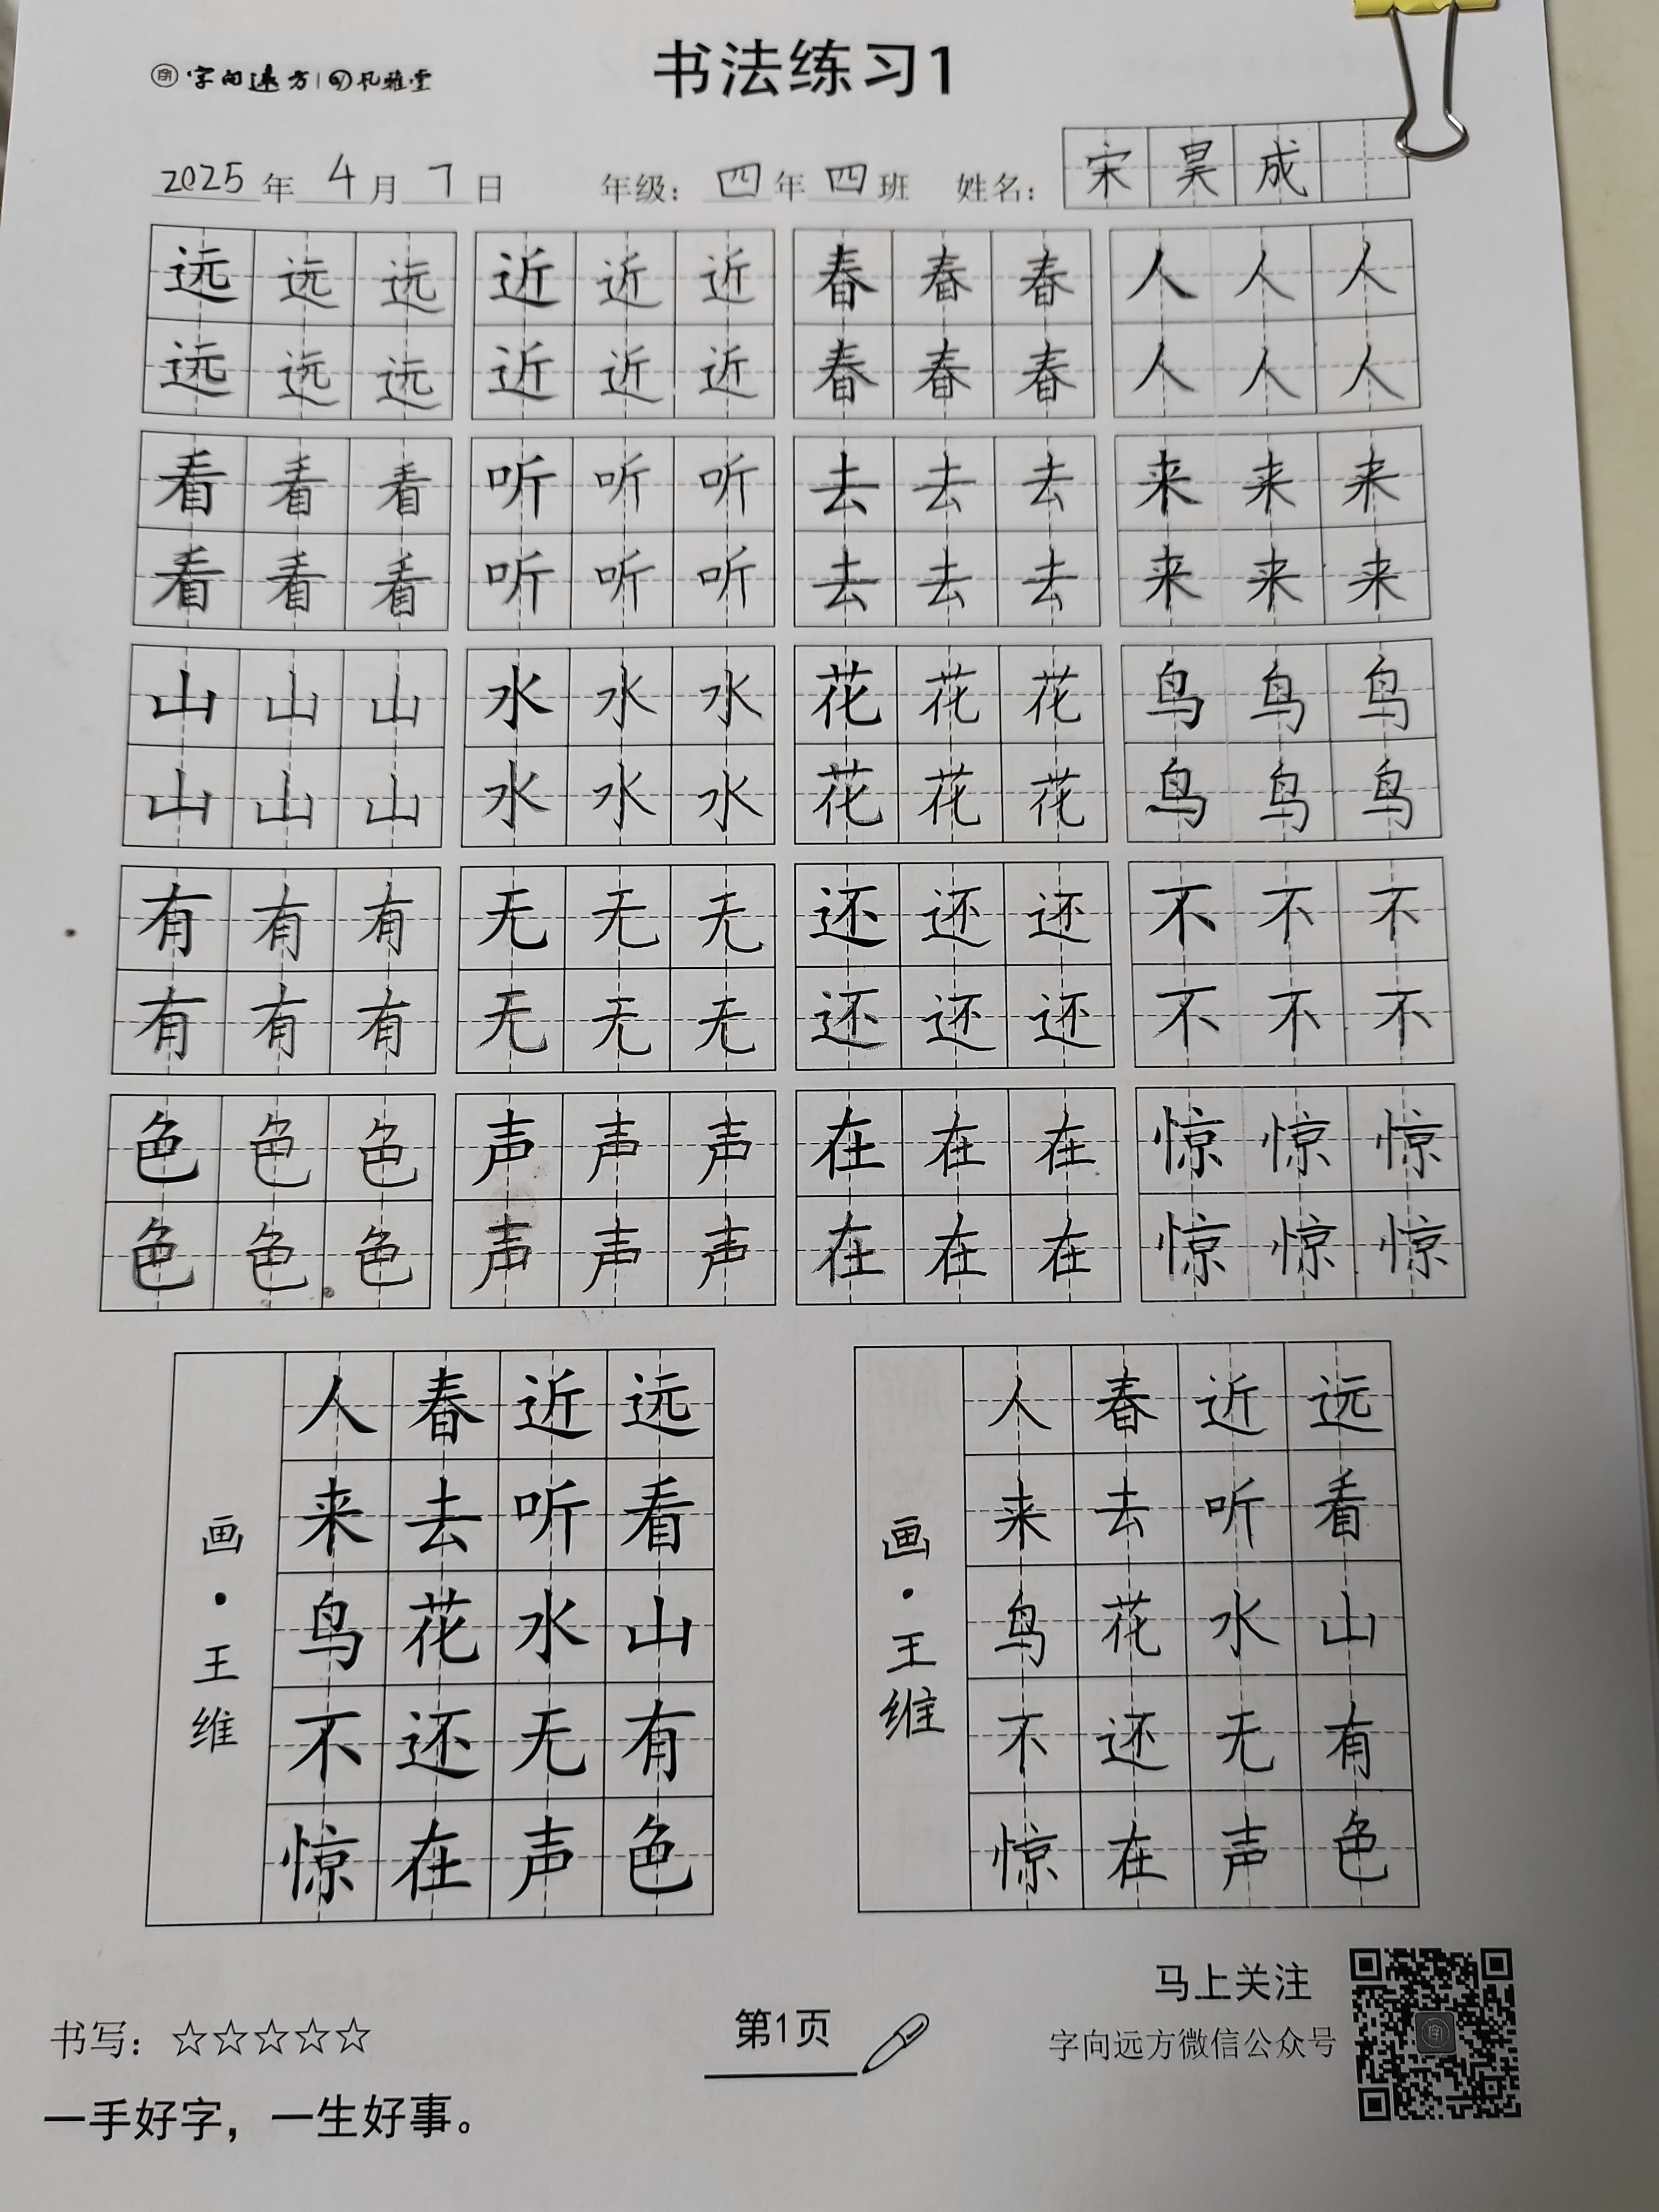 字向远方 风雅堂
书法练习1
2025年 4月 7日 年级：四年四班 姓名：宋昊成
远远远 近近近 春春春 人人人
远远远 近近近 春春春 人人人
看看看 听听听 去去去 来来来
看看看 听听听 去去去 来来来
山山山 水水水 花花花 鸟鸟鸟
山山山 水水水 花花花 鸟鸟鸟
有有有 无无无 还还还 不不不
有有有 无无无 还还还 不不不
色色色 声声声 在在在 惊惊惊
色色色 声声声 在在在 惊惊惊
远看山有色
近听水无声
春去花还在
人来鸟不惊
画·王维
远看山有色
近听水无声
春去花还在
人来鸟不惊
画·王维
书写：☆☆☆☆☆
一手好字，一生好事。
第1页
马上关注
字向远方微信公众号